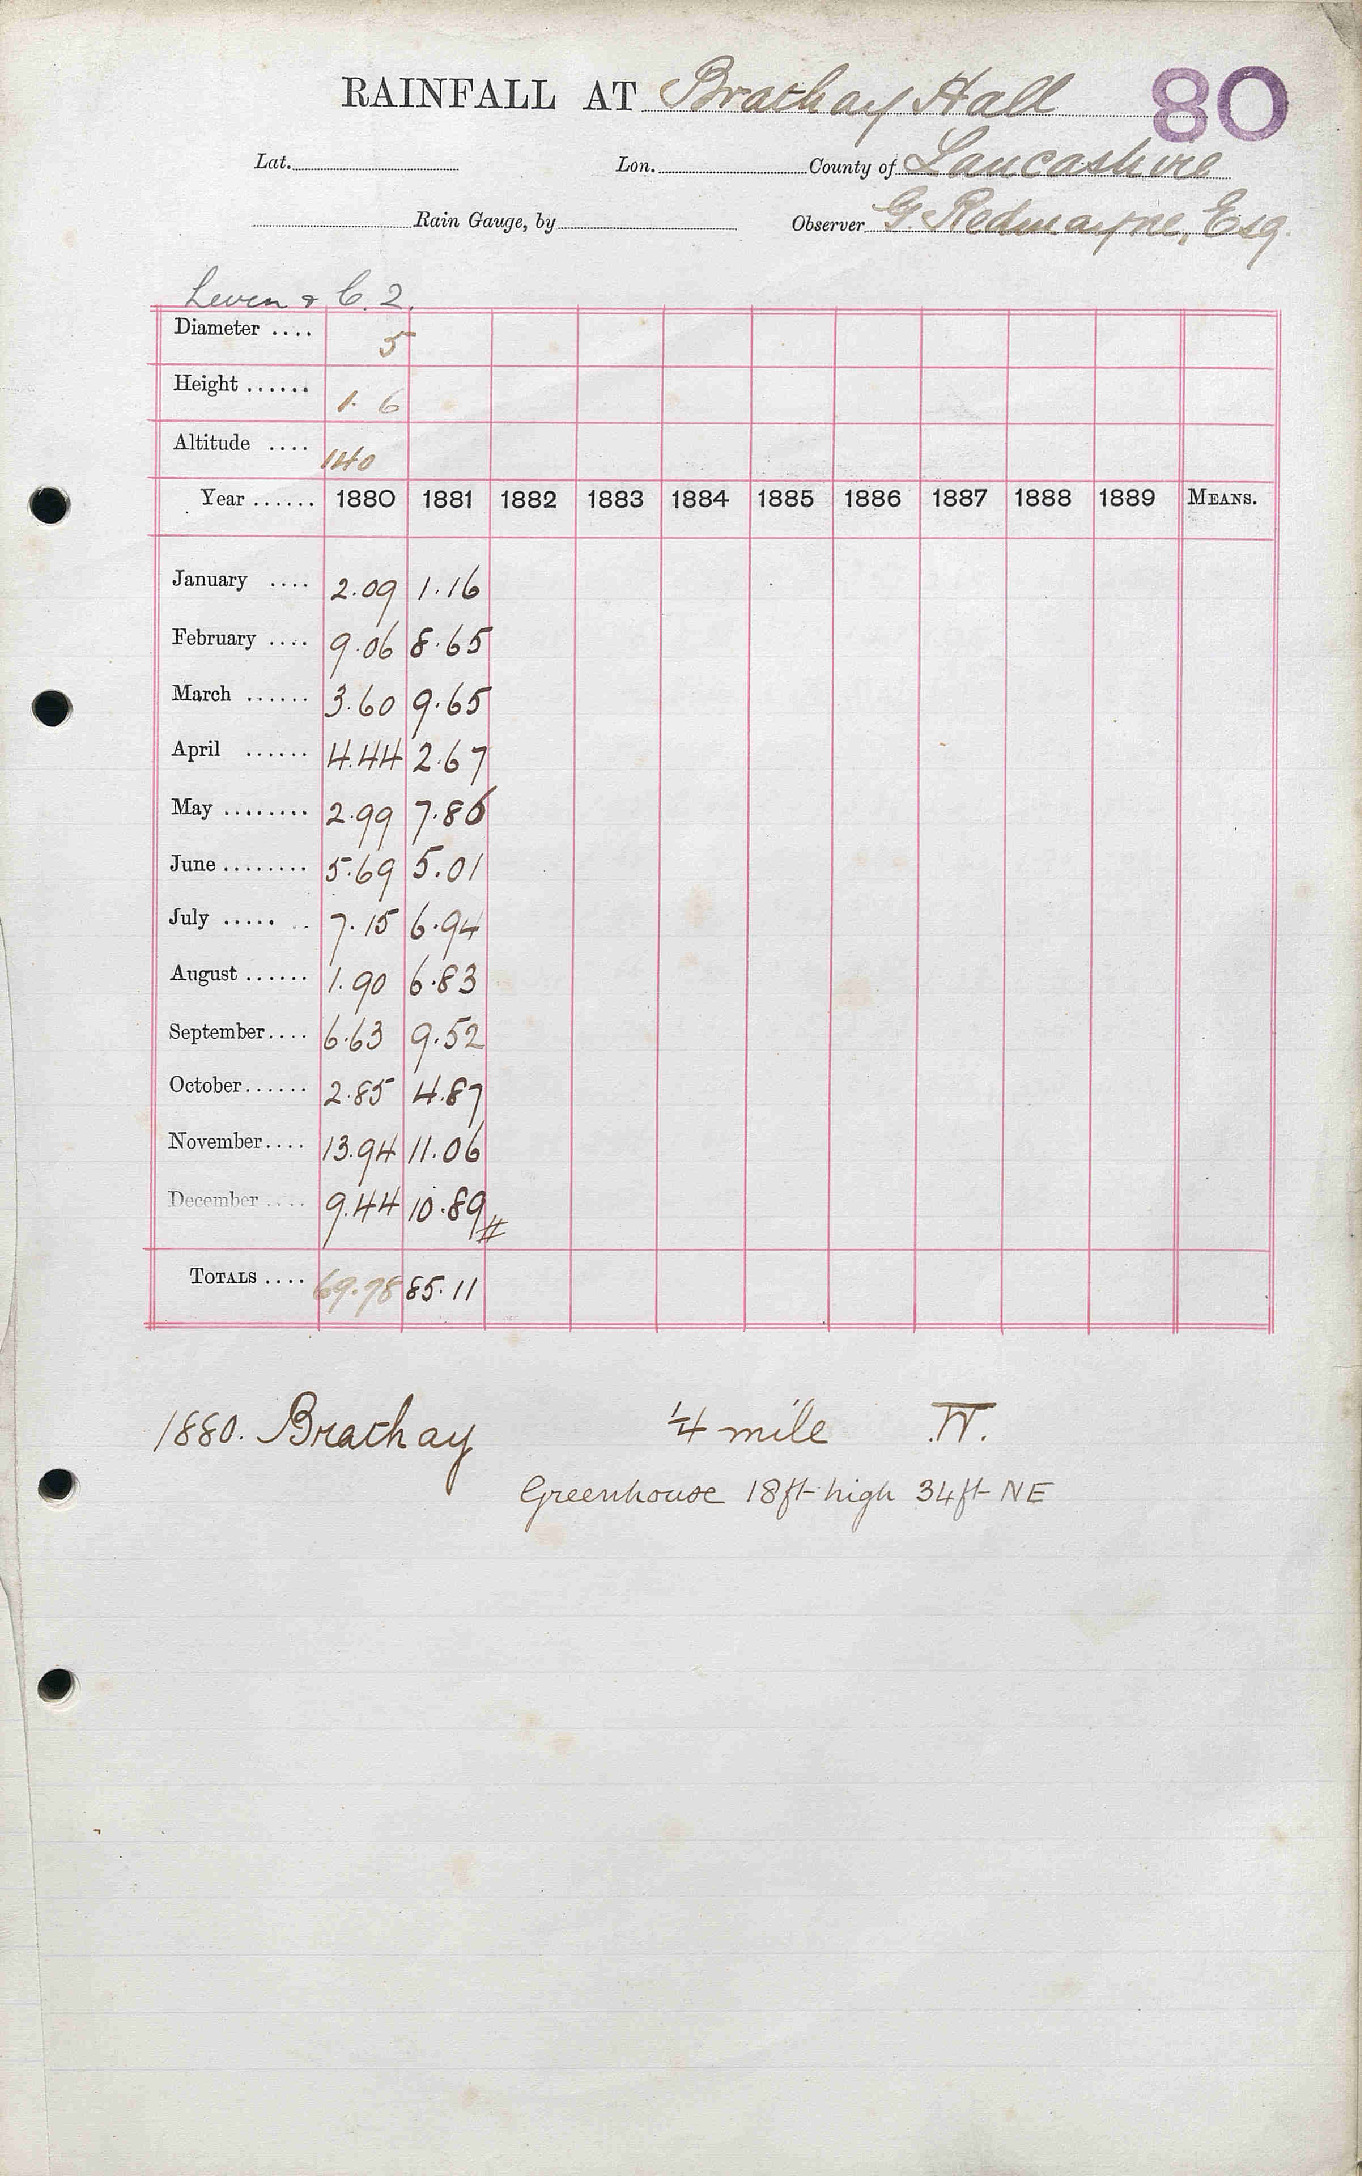 RAINFALL AT Brathay Hall 80
Lat. Lon. County of Lancashire
Rain Gauge, by Observer G. Redmayne, Esq.
Leven & C. 2.
Diameter .... 5
Height ...... 1. 6
Altitude .... 140
Year ...... 1880 1881 1882 1883 1884 1885 1886 1887 1888 1889 MEANS.
January .... 2.09 1.16
February .... 9.06 8.65
March ...... 3.60 9.65
April ...... 4.44 2.67
May ........ 2.99 7.86
June ........ 5.69 5.01
July ..... .. 7.15 6.94
August ...... 1.90 6.83
September.... 6.63 9.52
October...... 2.85 4.87
November.... 13.94 11.06
December .... 9.44 10.89
TOTALS .... 69.78 85.11
1880. Brathay ¼ mile W.
Greenhouse 18ft high 34ft NE